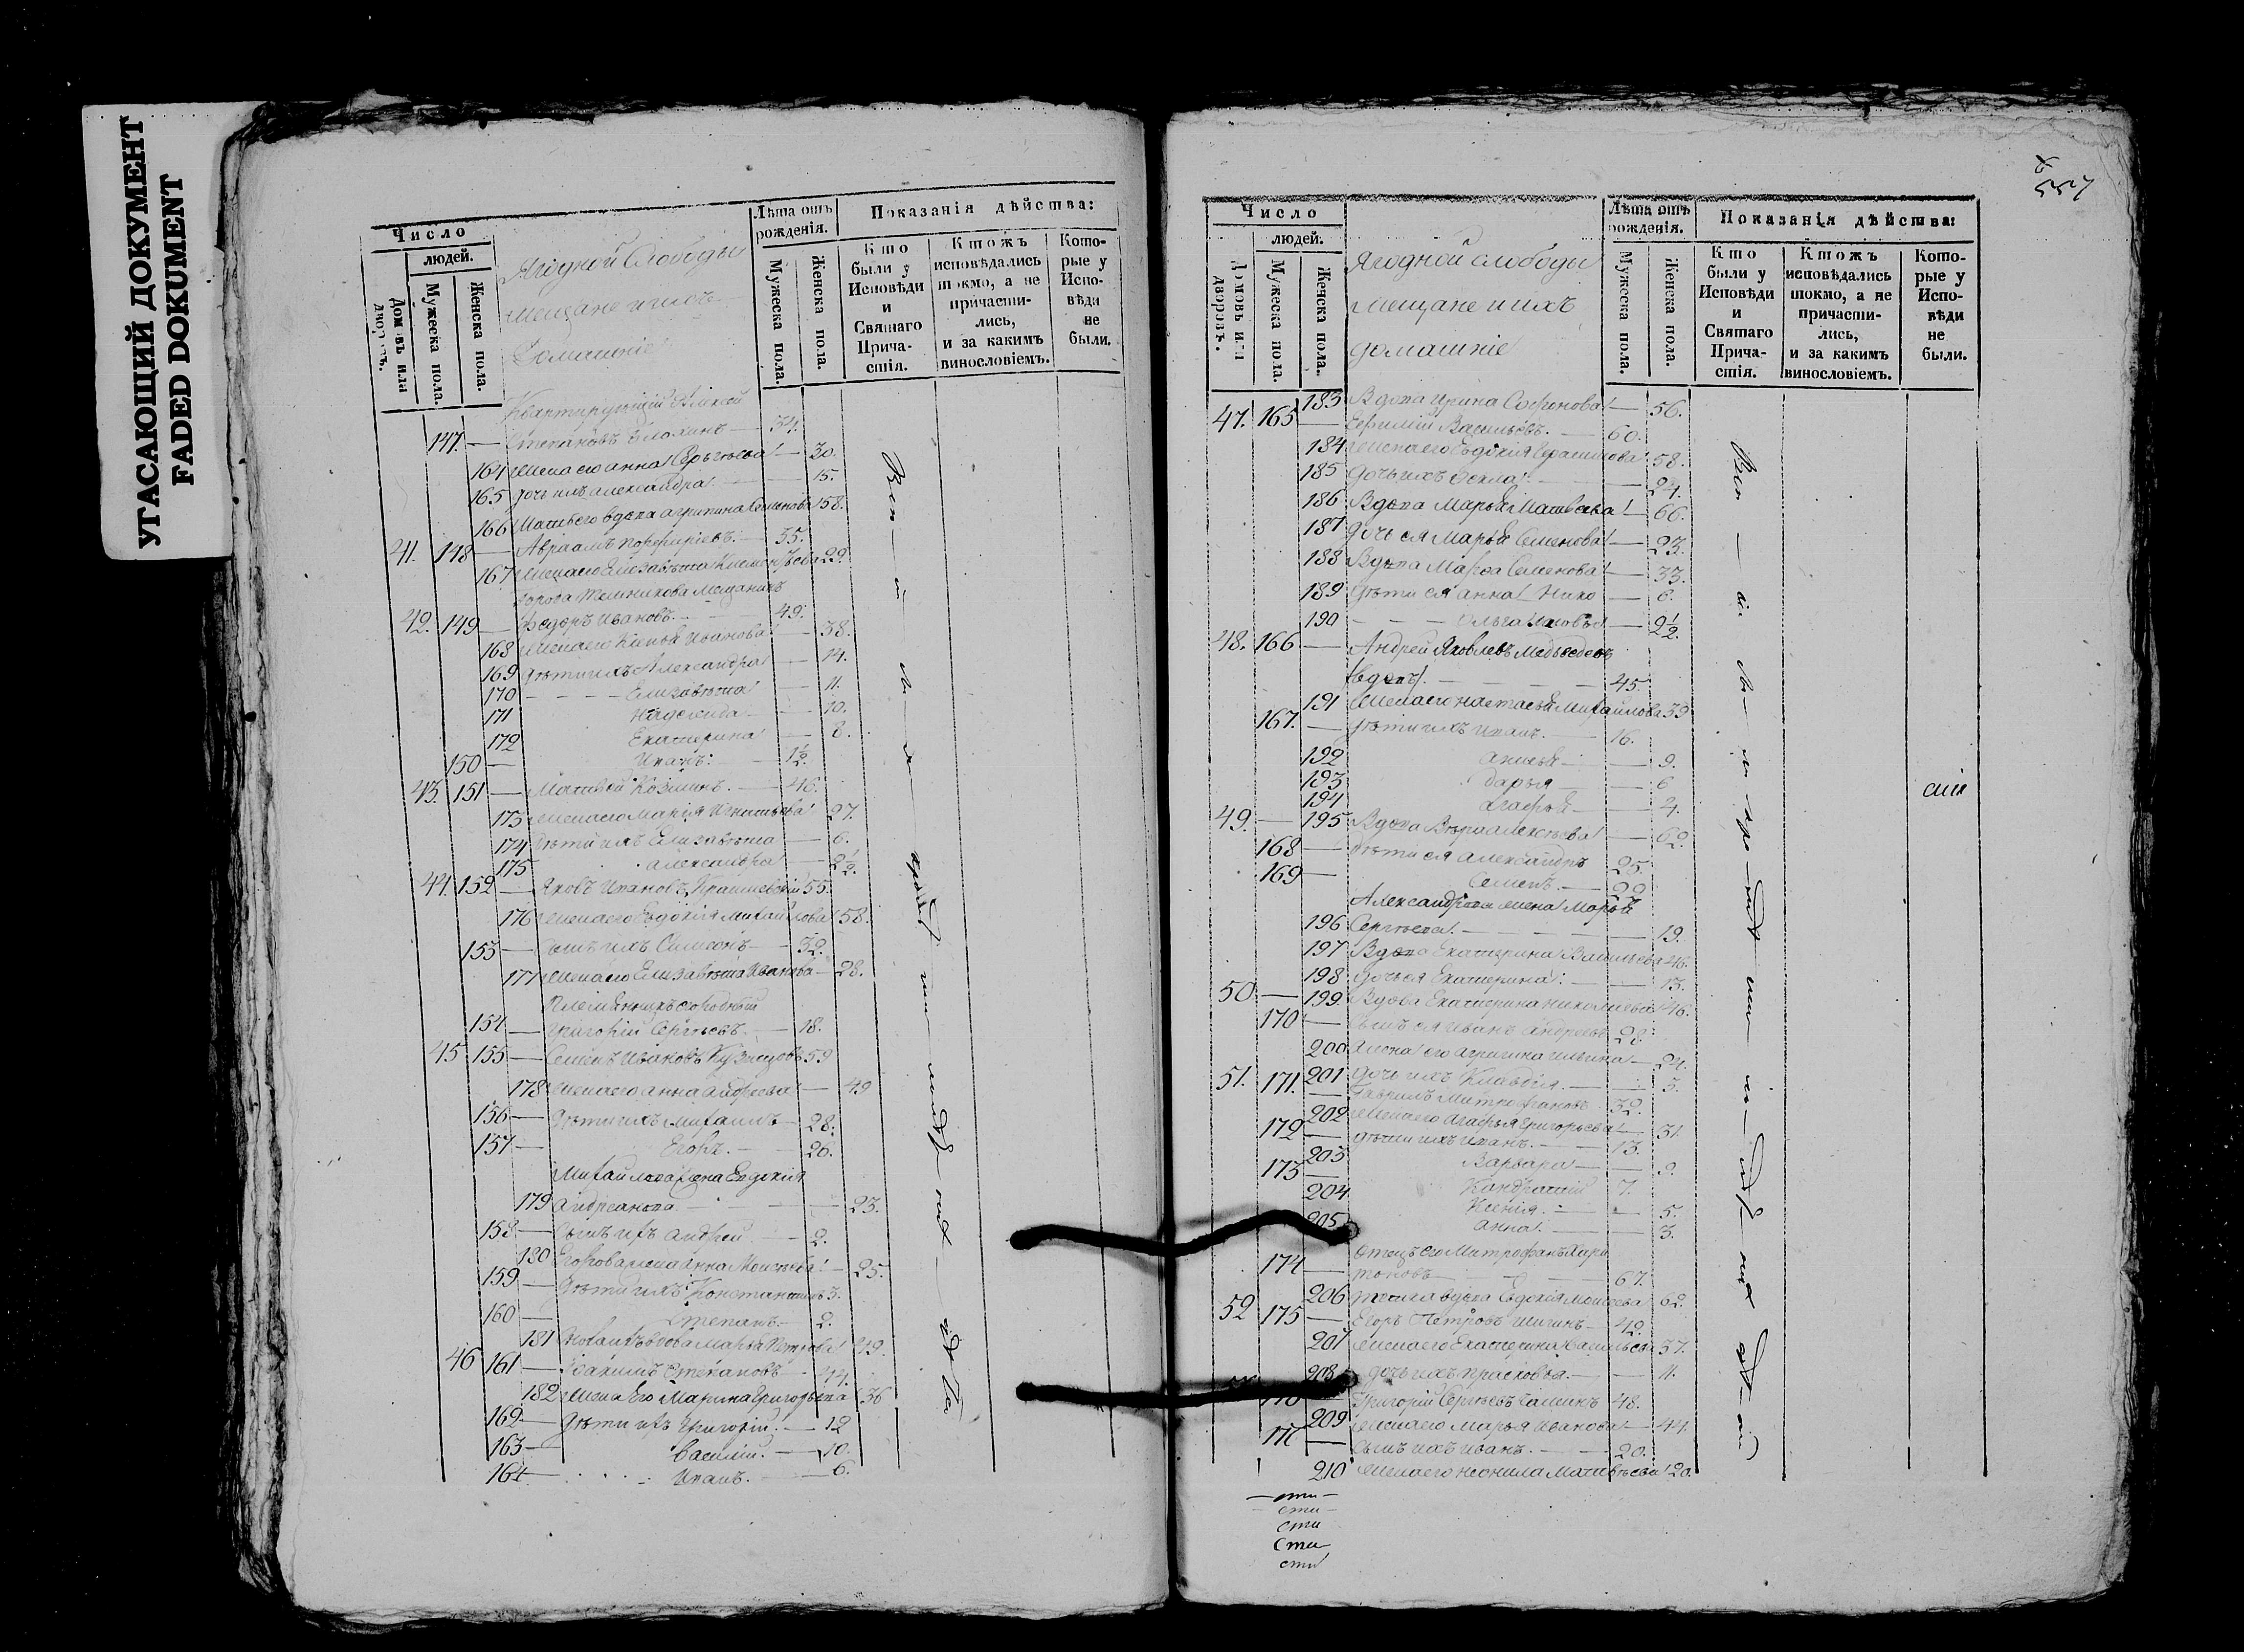 УГАСАЮЩИЙ ДОКУМЕНТ
FADED DOKUMENT
Число
людей.
Домовъ или дворовъ.
Мужеска пола.
Женска пола.
Ягодной Слободы
мещане и ихъ
домашніе
Лѣта отъ рожденія.
Мужеска пола.
Женска пола.
Показанія дѣйства:
Кто были у Исповѣди и Святаго Причастія.
Ктожъ исповѣдались токмо, а не причастились, и за какимъ винословіемъ.
Которые у Исповѣди не были.
Квартирующій Алексей
147. — Степановъ — 34.
164 Жена его Анна Сергѣева — 30.
165 Дочь ихъ Александра — 15.
166 Мать его вдова Агрипина Семенова 58.
41. 148 — Авраамъ Порфиріевъ. — 35.
167 Жена его Елизавѣта 29.
города Темникова мещанинъ
42. 149 — Федоръ Ивановъ. — 49.
168 Жена его Ивановa — 38.
169 Дѣти ихъ Александра — 14.
170 — Елизавѣта — 11.
171 Надежда — 10.
172 Екатерина — 8.
150 — Иванъ. — 1½
43. 151 — Матвей Козминъ. — 46.
173 Жена его Марія Игнатьева 27.
174 Дѣти ихъ Елизавѣта — 6.
175 Александра — 2½
44. 152 — Яковъ Ивановъ 55.
176 Жена его Евдокія Михайлова 58.
153 — Сынъ ихъ Симеонъ — 32.
177 Жена его Елизавѣта Иванова — 28.
Племянникъ сородный
154 — Григорій Сергѣевъ. — 18.
45 155 — Семенъ Ивановъ Кузнецовъ 59
178 Жена его Анна Андреева — 49
156 — Дѣти ихъ Михаилъ — 28.
157 — Егоръ. — 26.
Михайлова жена Евдокія
179 Андреанова — 23.
158 — Сынъ ихъ Андрей — 2.
180 Егорова жена Анна Моисѣева — 25.
159 — Дѣти ихъ Константинъ 3.
160 — Степанъ. — 2.
181 вдова Марья Петрова 49.
46 161 — Степановъ — 44.
182 Жена Его Марина Григорьева 36
162 — Дѣти ихъ Григорій. — 12
163 — Василій. — 10.
164 — Иванъ. — 6.
557
Число
людей.
Домовъ или дворовъ.
Мужеска пола.
Женска пола.
Ягодной слободы
мещане и ихъ
домашніе
Лѣта отъ рожденія.
Мужеска пола.
Женска пола.
Показанія дѣйства:
Кто были у Исповѣди и Святаго Причастія.
Ктожъ исповѣдались токмо, а не причастились, и за какимъ винословіемъ.
Которые у Исповѣди не были.
183 Вдова Ирина Софонова — 56.
47. 165 — Ефимій Васильевъ. — 60.
184 Жена его Евдокія Герасимова 58.
185 Дочь ихъ Фекла — 24.
186 Вдова Марья Матвѣева — 66.
187 Дочь ея Марья Семенова — 23.
188 Вдова Марфа Семенова — 33.
189 Дѣти ея Анна — 6.
190 — Ольга — 2½
48. 166 — Андрей Яковлевъ Медведевъ
(вдовъ). — 45.
191 Жена его Настасья Михайлова 39
167. — Дѣти ихъ Иванъ. — 16.
192 Анисья — 9.
193 Дарья — 6
194 Агафья — 4.
49. — 195 Вдова Вѣра Алексѣева — 62.
168 — Дѣти ея Александръ 25.
169 — Семенъ. — 22
Александрова жена Марья
196 Сергѣева — 19.
197 Вдова Екатерина Васильева 46.
198 Дочь ея Екатерина — 13.
50 — 199. Вдова Екатерина Николаева 46.
170 — Сынъ ея Иванъ Андреевъ 28
200 Жена его Агрипина Ильина — 24.
201 Дочь ихъ Клавдія. — 3.
51. 171. — Гаврилъ Митрофановъ 32.
202 Жена его Агафья Григорьева — 31.
172 — Дѣти ихъ Иванъ. — 13.
203 Варвара — 9.
173 — Кондратій 7.
204 Ксенія. — 5.
205 Анна. — 3.
Отецъ его Митрофанъ Хари
174 — тоновъ — 67.
206 вдова Евдокія Моисеева 62.
52 175 — Егоръ Петровъ Шигинъ — 42.
207 Жена его Екатерина Васильева 37.
208 Дочь ихъ Прасковья. — 11.
Григорій Сергѣевъ 48.
209 Жена его Марья Иванова — 44.
Сынъ ихъ Иванъ. — 20.
210 Жена его Неонила Матвѣева 20.